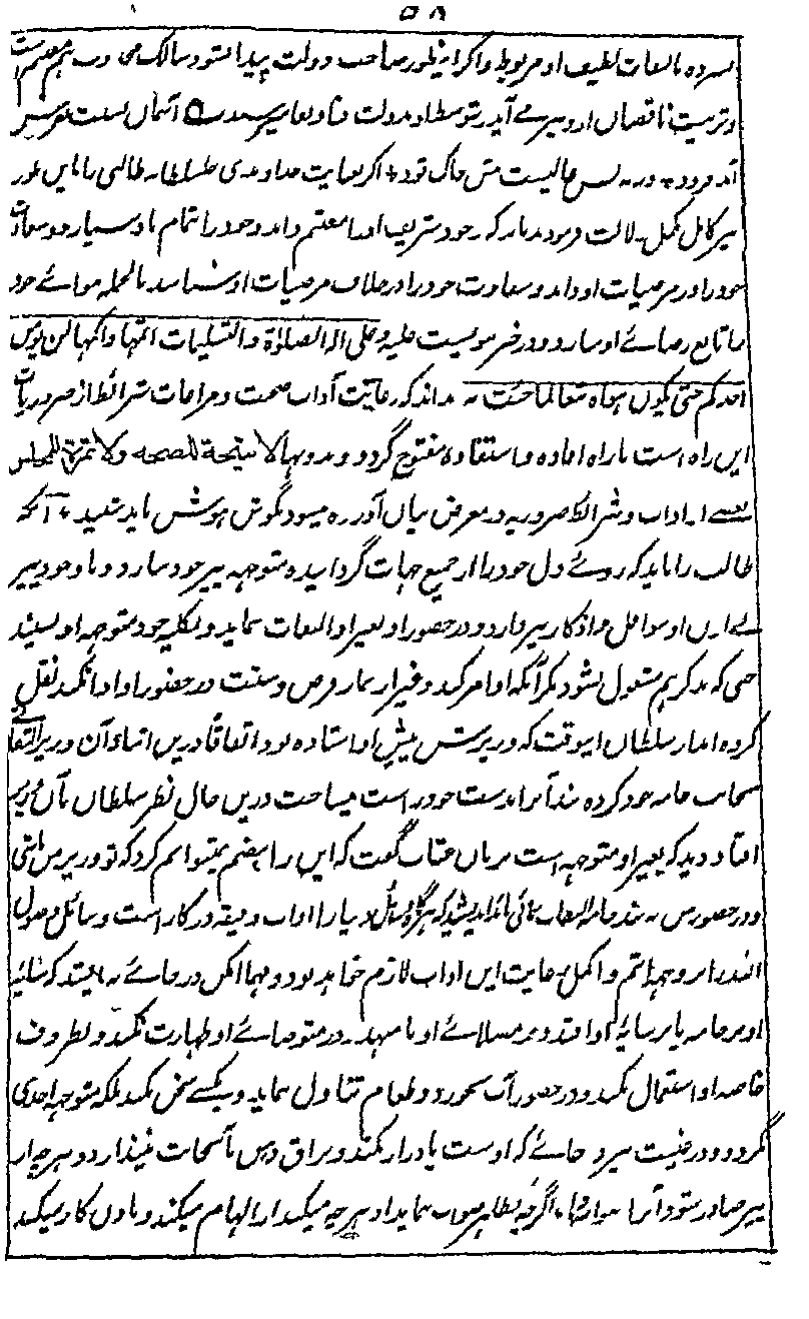 ۵۸
سپرده بالتفات لطیف او مربوط واگر اینطور صاحب دولت پیدا نشود سالک مجذوب هم مغتنم است
وتربیت ناقصان ازو نیز می آید وبتوسط او بدولت فنا وبقا میرسند ۵ آسمان نسبت بعرش
آمد فرود + ورنه بس عالیست پیش خاک تود + اگر بعنایت خداوندی جل سلطانه طالبی را باین طور
پیر کامل مکمل دلالت فرمودند باید که وجود شریف او را مغتنم داند وخود را بتمام باو سپارد وسعادت
خود را در مرضیات او داند وشقاوت خود را در خلاف مرضیات او شناسد بالجمله هوائے خود
را تابع رضائے او سازد ودر خبر نبویست علیه وعلی آله الصلوٰة والتسلیمات اتمها واکملها لن یومن
احدکم حتی یکون هواه تبعا لما جئت به بداند که رعایت آداب صحبت ومراعات شرائط از ضروریات
این راه است تا راه افاده واستفاده مفتوح گردد وبدونها لا نتیجة للصحبه ولا ثمرة للمجلس
بعضے از آداب وشرائط ضروریه در معرض بیان آورده میشود بگوش هوش باید شنید + آنکه
طالب را باید که روئے دل خود را از جمیع جهات گردانیده متوجه پیر خود سازد وبا وجود پیر
بے اذن او بنوافل واذکار نپردازد ودر حضور او بغیر او التفات ننماید وبکلیه خود متوجه او بنشیند
حتی که بذکر هم مشغول نشود مگر آنکه او امر کند وغیر از نماز فرض وسنت در حضور او ادا نکند نقل
کرده اند از سلطان اینوقت که وزیرش پیش او استاده بود اتفاقاً درین اثنا آن وزیر التفاتے
بجانب جامه خود کرده بند آنرا بدست خود راست میساخت درین حال نظر سلطان بآن وزیر
افتاد دید که بغیر او متوجه است بزبان عتاب گفت که این را هضم نمیتوانم کرد که تو وزیر من باشی
ودر حضور من به بند جامه التفات نمائی باید اندیشید که هرگاه وسائل دنیا را آداب دقیقه درکار است وسائل وصول
الی الله را بر وجه اتم واکمل رعایت این آداب لازم خواهد بود ومهما امکن در جائے نه ایستد که سایه
او بر جامه یا بر سایهٔ او افتد وبر مصلائے او پا ننهد ودر متوضائے او طهارت نکند وبظروف
خاصه او استعمال نکند ودر حضور او آب نخورد وطعام تناول ننماید وبکسے سخن نکند بلکه متوجه احدی
نگردد ودر غیبت پیر در جائے که اوست پا دراز نکند وبزاق دهن بآنجانب نیندازد وهرچه از
پیر صادر شود آنرا صواب داند اگرچه بظاهر صواب ننماید او هرچه میکند از الهام میکند وباذن کار میکند